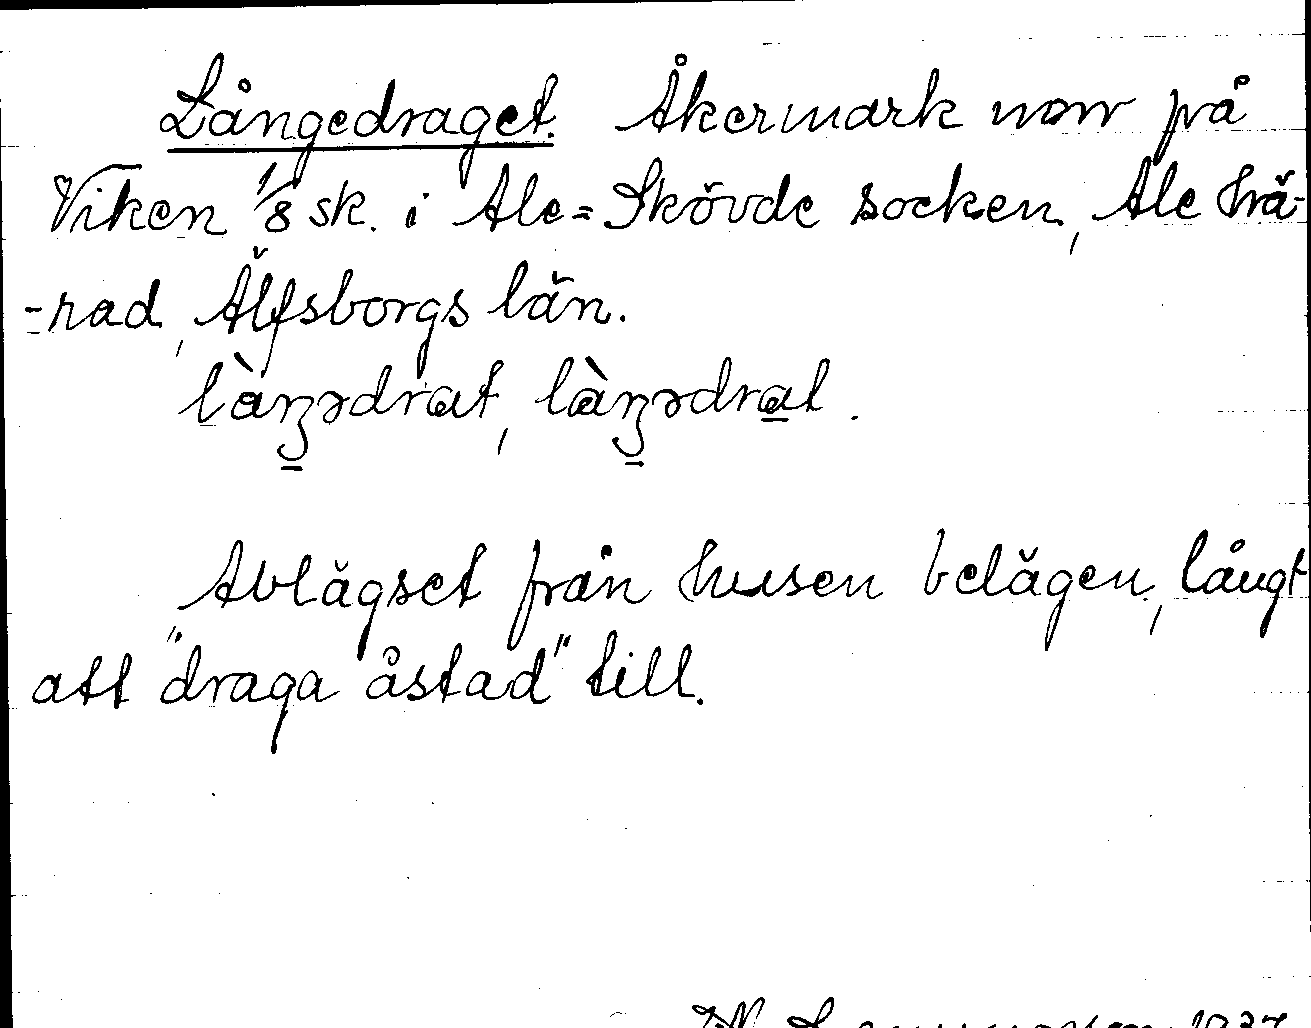 Långedraget. Åkermark norr på
Viken 1/8 sk. i Ale=Skövde socken, Ale hä-
-rad, Älfsborgs län.
làŋədrat, làŋədrat.
Avlägset från husen belägen, långt
att "draga åstad" till.